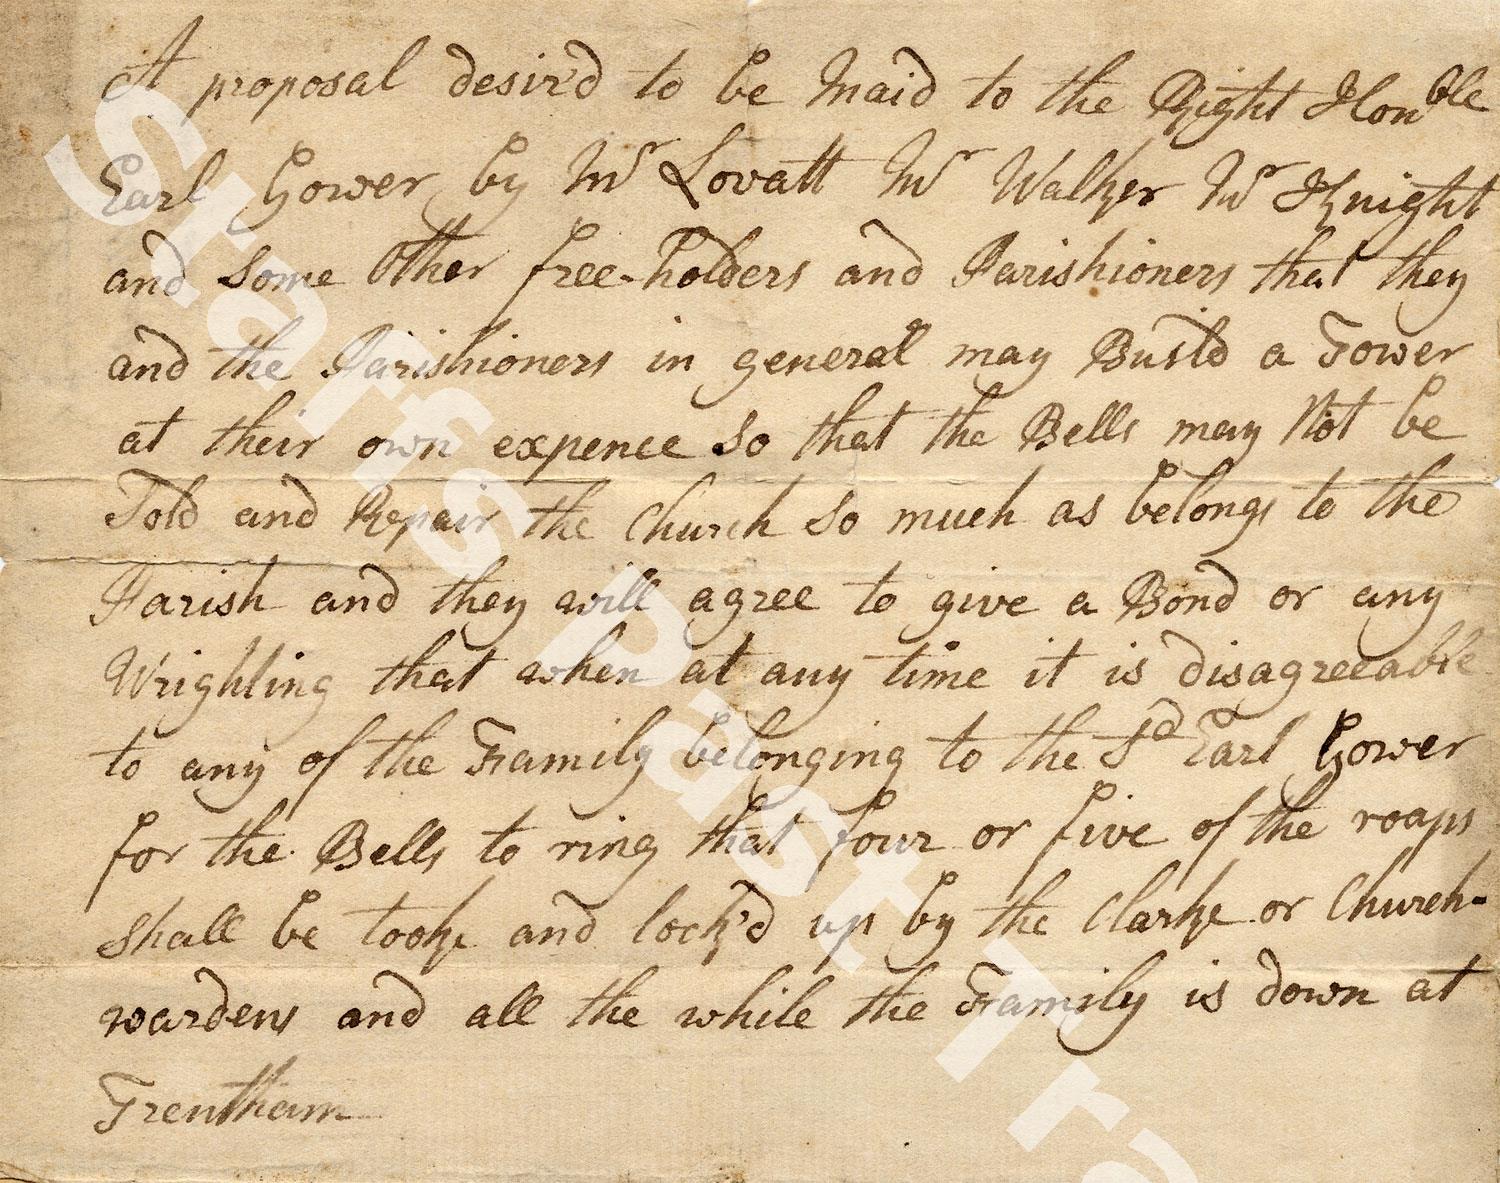 A proposal desir'd to be Maid to the Right Honble
Earl Gower by Mr Lovatt Mr Walker Mr Knight
and some Other free-holders and Parishioners that they
and the Parishioners in general may Build a Tower
at their own expence so that the Bells may Not be
Told and Repair the Church so much as belongs to the
Parish and they will agree to give a Bond or any
Wrighting that when at any time it is disagreeable
to any of the Family belonging to the Sd Earl Gower
for the Bells to ring that four or five of the roaps
shall be tooke and lock'd up by the Clarke or Church-
wardens and all the while the Family is down at
Trentham
Staffs Past Tra